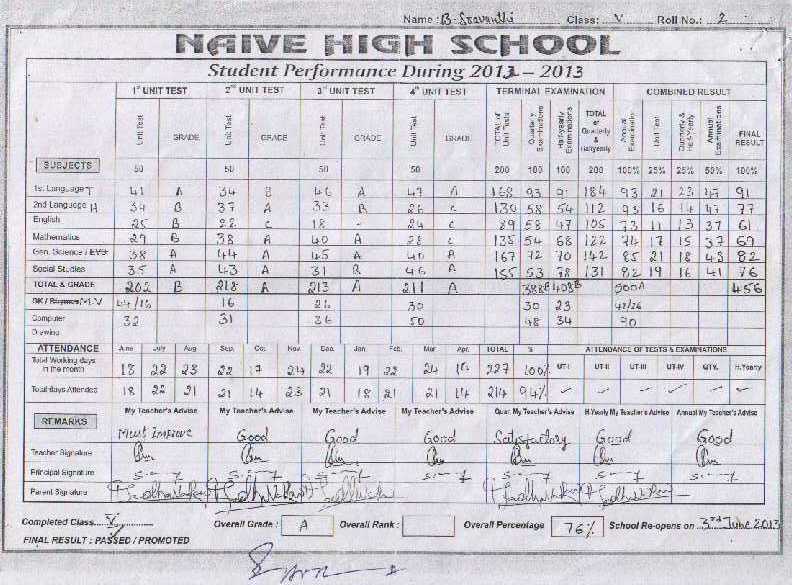 Name : B. Sravanthi Class: V Roll No.: 2
NAIVE HIGH SCHOOL
Student Performance During 2012 – 2013
1st UNIT TEST 2nd UNIT TEST 3rd UNIT TEST 4th UNIT TEST TERMINAL EXAMINATION COMBINED RESULT
SUBJECTS Unit Test GRADE Unit Test GRADE Unit Test GRADE Unit Test GRADE TOTAL of Unit Tests Quarterly Examinations Half-yearly Examinations TOTAL of Quarterly & Halfyearly Annual Examination Unit Test Quarterly & Half-Yearly Annual Examinations FINAL RESULT
50 50 50 50 200 100 100 200 100% 25% 25% 50% 100%
1st. Language T 41 A 34 B 46 A 47 A 168 93 91 184 93 21 23 47 91
2nd Language H 34 B 37 A 33 B 26 C 130 58 54 112 93 16 14 47 77
English 25 B 22 C 18 - 24 C 89 58 47 105 73 11 13 37 61
Mathematics 29 B 38 A 40 A 28 C 135 54 68 122 74 17 15 37 69
Gen. Science / EVS 38 A 44 A 45 A 40 A 167 72 70 142 85 21 18 43 82
Social Studies 35 A 43 A 31 B 46 A 155 53 78 131 82 19 16 41 76
TOTAL & GRADE 202 B 218 A 213 A 211 A 388B 408B 500A 456
16 30 30 23
Computer 32 31 36 50 48 34 90
Drawing
ATTENDANCE June July Aug Sep. Oct. Nov. Dec. Jan. Feb. Mar Apr. TOTAL % ATTENDANCE OF TESTS & EXAMINATIONS
Total Working days in the month 18 22 23 22 17 24 22 19 22 24 227 100% UT-I UT-II UT-III UT-IV QTY. H.Yearly
Total days Attended 18 22 21 21 14 23 21 18 21 21 14 214 94%
REMARKS My Teacher's Advise My Teacher's Advise My Teacher's Advise My Teacher's Advise Quar. My Teacher's Advise H.Yearly My Teacher's Advise Annual My Teacher's Advise
Must Improve Good Good Good Satisfactory Good Good
Teacher Signature
Principal Signature
Parent Signature
Completed Class V Overall Grade : A Overall Rank : Overall Percentage 76% School Re-opens on 3rd June 2013
FINAL RESULT : PASSED / PROMOTED